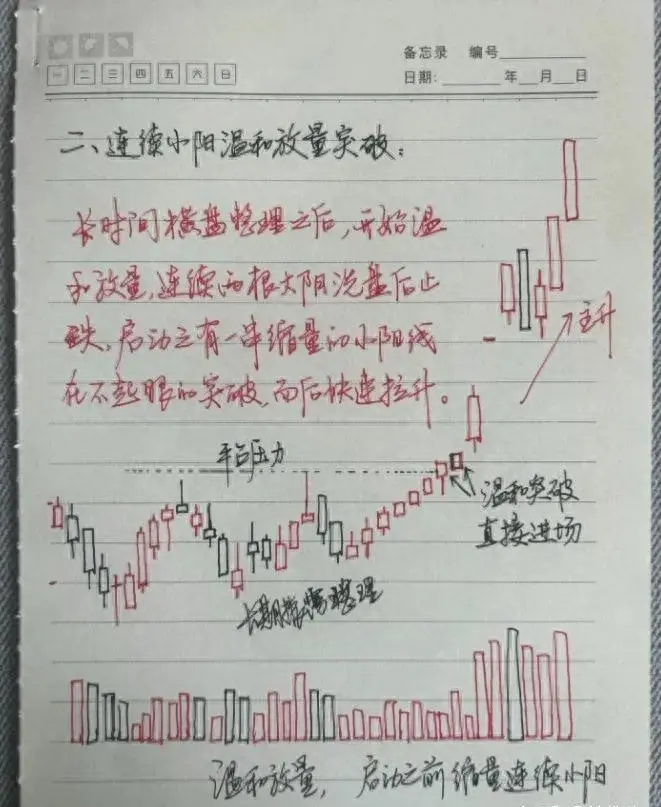 备忘录 编号
一 二 三 四 五 六 日
日期: 年 月 日
二、连续小阳温和放量突破：
长时间横盘整理之后，开始温
和放量，连续两根大阴洗盘后止
跌，启动之有一串缩量的小阳线
在不起眼的突破，而后快速拉升。
主升
平台压力
温和突破
直接进场
长期横盘整理
温和放量， 启动之前缩量连续小阳